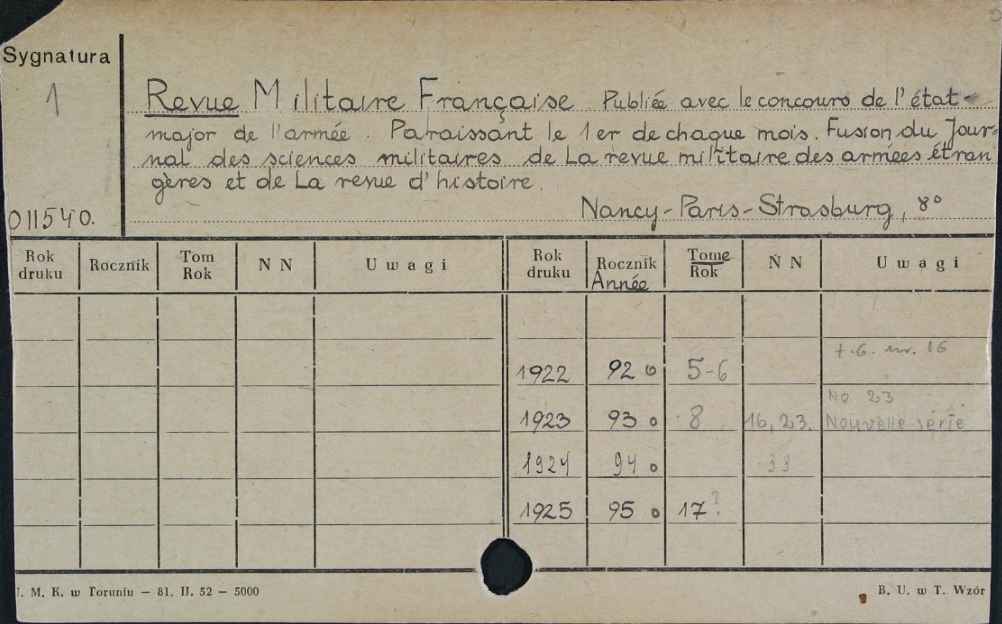 Sygnatura
1
011540.
Revue Militaire Française Publiée avec le concours de l'état-
major de l'armée. Paraissant le 1er de chaque mois. Fusion du Jour-
nal des sciences militaires de La revue militaire des armées étran
gères et de La revue d'histoire.
Nancy-Paris-Strasburg, 8°
Rok druku Rocznik Tom Rok N N Uwagi Rok druku Rocznik Année Tome Rok N N Uwagi
t. 6. nr. 16
1922 92 o 5-6
No 23
1923 93 o 8 16, 23. Nouvelle série
1924 94 o 33
1925 95 o 17?
U. M. K. w Toruniu — 81. II. 52 — 5000
B. U. w T. Wzór